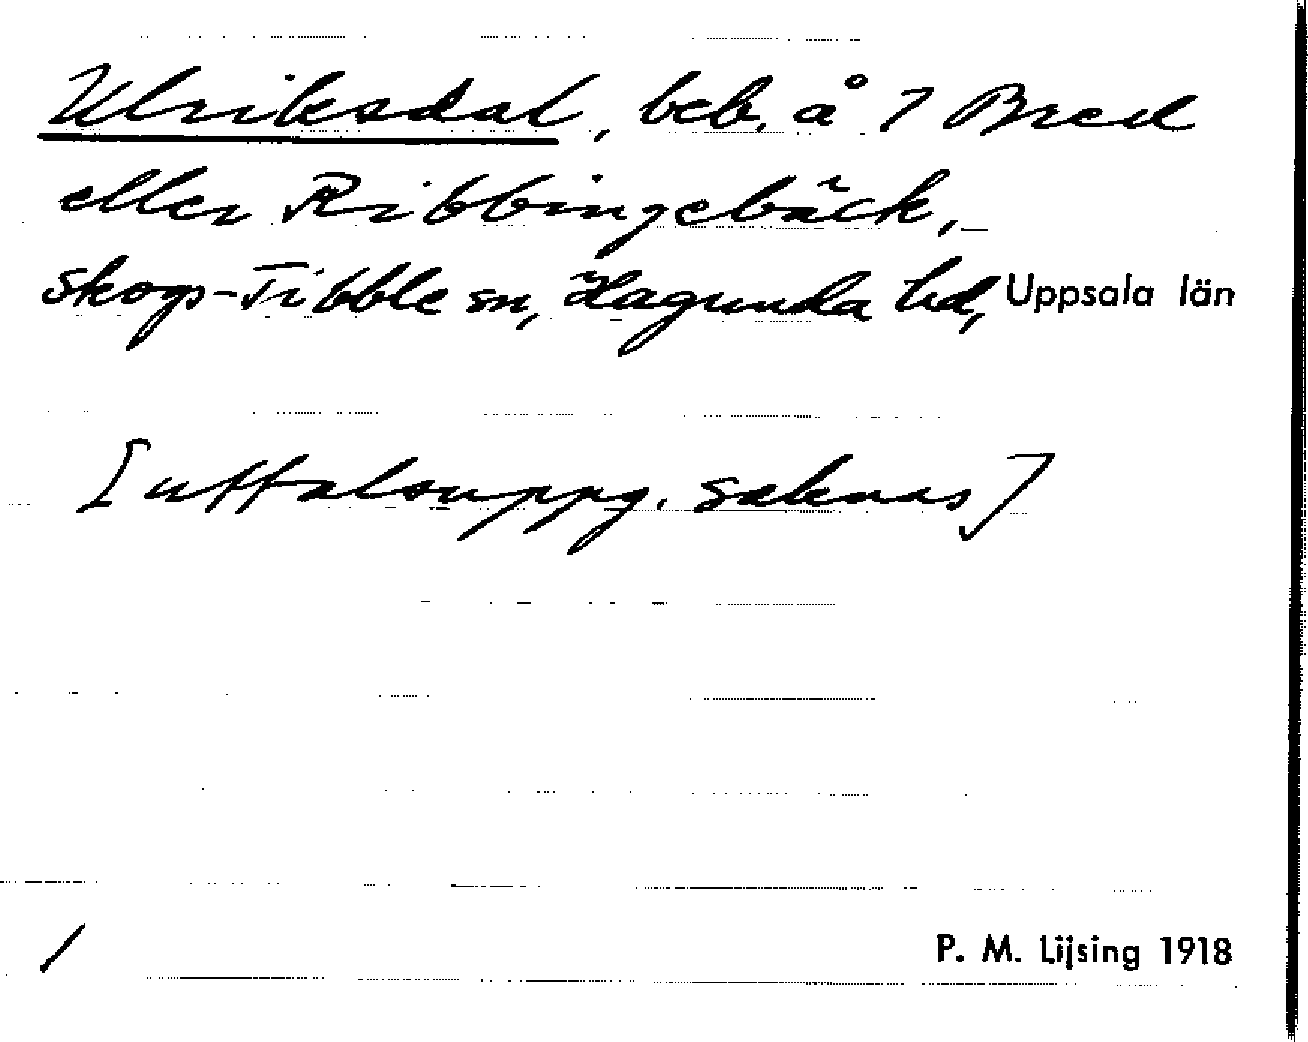 Ulriksdal, beb. å 7 Bred
eller Ribbingebäck,
Skogs-Tibble sn, Hagunda hd, Uppsala län
[uttalsuppg. saknas]
/
P. M. Lijsing 1918